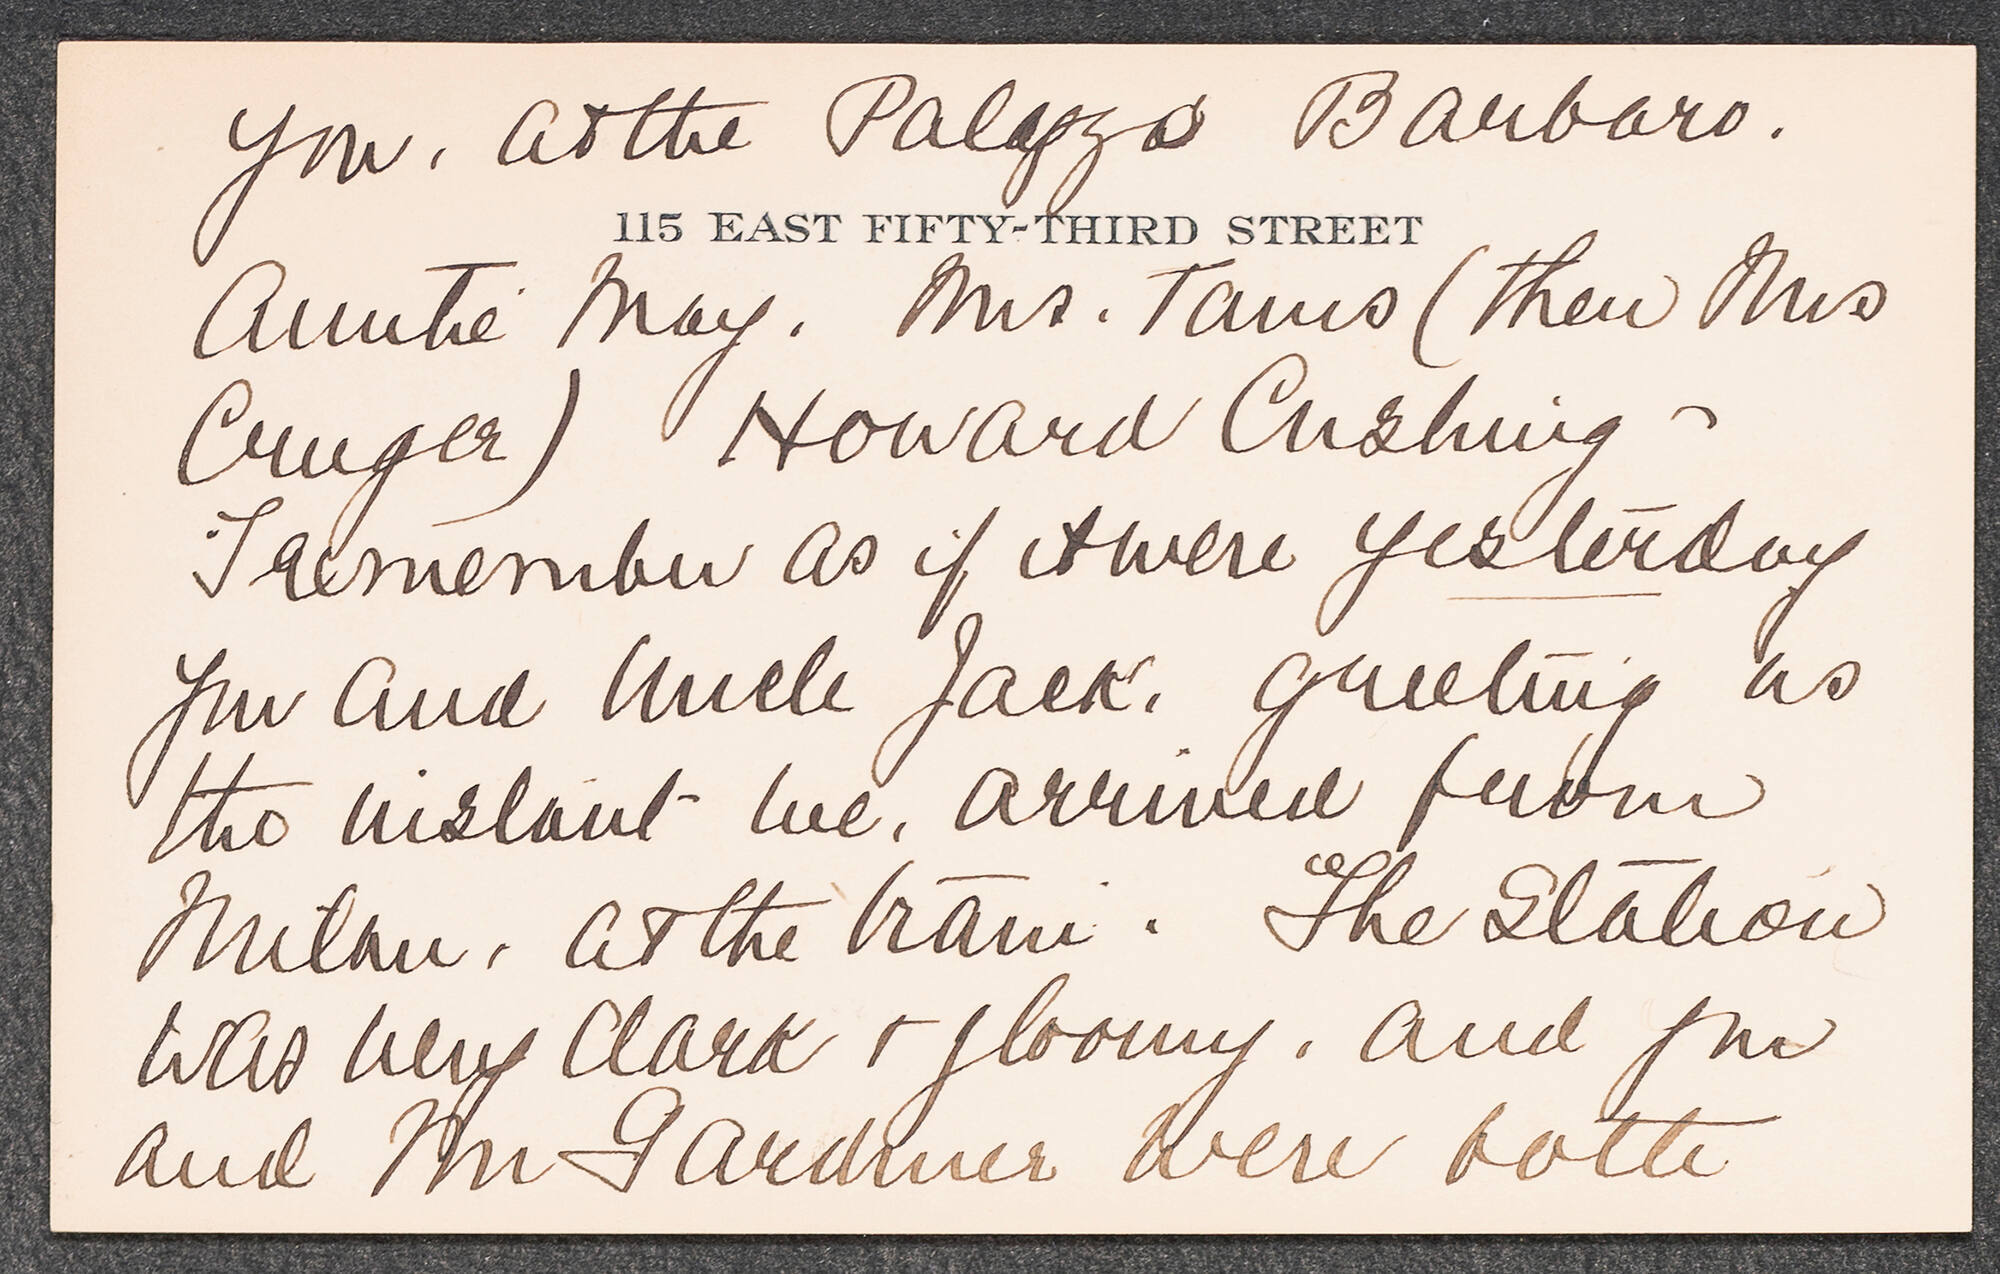 you, at the Palazzo Barbaro.
115 EAST FIFTY-THIRD STREET
Auntie May. Mrs. Tams (then Mrs
Cruger) Howard Cushing -
I remember as if it were yesterday
you and Uncle Jack. greeting us
the instant we, arrived from
Milan, at the train. The Station
was very dark + gloomy, and you
and Mr Gardner were both